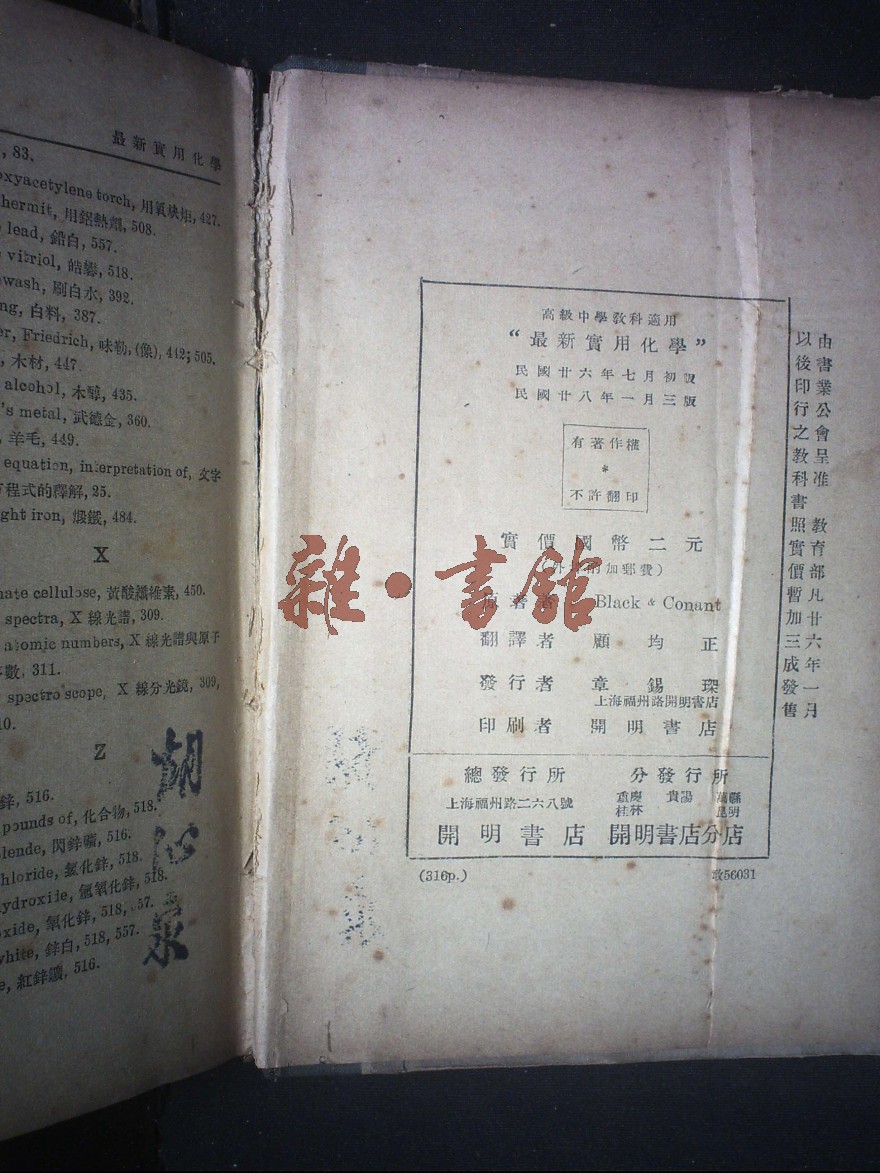 最新實用化學
, 83.
oxyacetylene torch, 用氧炔炬, 427.
hermit, 用鋁熱劑, 508.
lead, 鉛白, 557.
vitriol, 皓礬, 518.
wash, 刷白水, 392.
ng, 白料, 387.
er, Friedrich, 味勒, (像), 442; 505.
木材, 447.
alcohol, 木醇, 435.
's metal, 武德金, 360.
羊毛, 449.
equation, interpretation of, 文字
方程式的釋解, 25.
ght iron, 煅鐵, 484.
X
nate cellulose, 黃酸纖維素, 450.
spectra, X 線光譜, 309.
atomic numbers, X 線光譜與原子
序數, 311.
spectroscope, X 線分光鏡, 309,
10.
Z
鋅, 516.
pounds of, 化合物, 518.
blende, 閃鋅礦, 516.
chloride, 氯化鋅, 518.
ydroxide, 氫氧化鋅, 518.
oxide, 氧化鋅, 518, 557.
white, 鋅白, 518, 557.
e, 紅鋅鑛, 516.
胡 泉
高級中學教科適用
“最新實用化學”
民國廿六年七月初版
民國廿八年一月三版
有著作權
*
不許翻印
實價國幣二元
(外埠酌加郵費)
原著者 Black & Conant
翻譯者 顧均正
發行者 章錫琛
上海福州路開明書店
印刷者 開明書店
總發行所 分發行所
上海福州路二六八號
重慶 貴陽 萬縣
桂林 昆明
開明書店 開明書店分店
(316p.) 教56031
由書業公會呈准 教育部凡廿六年一月
以後印行之教科書照實價暫加三成發售
雜·書館